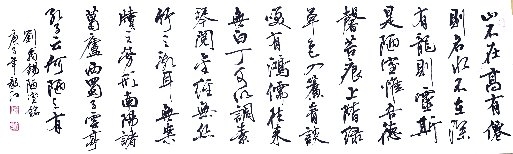 山不在高有僊
則名水不在深
有龍則靈斯
是陋室惟吾德
馨苔痕上階綠
草色入簾青談
咲有鴻儒往来
無白丁可以調素
琴閱金經無丝
竹之亂耳無案
牘之勞形南陽諸
葛廬西蜀子雲亭
孔子云何陋之有
劉禹錫陋室銘
庚子年